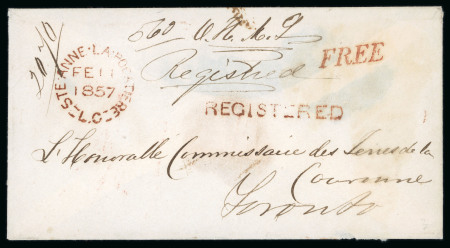 O.H.M.S
FREE
Registered
STE ANNE-LA-POCATIERE-L.C.
FE 11
1857
REGISTERED
L'Honorable Commissaire des Terres de la
Couronne
Toronto